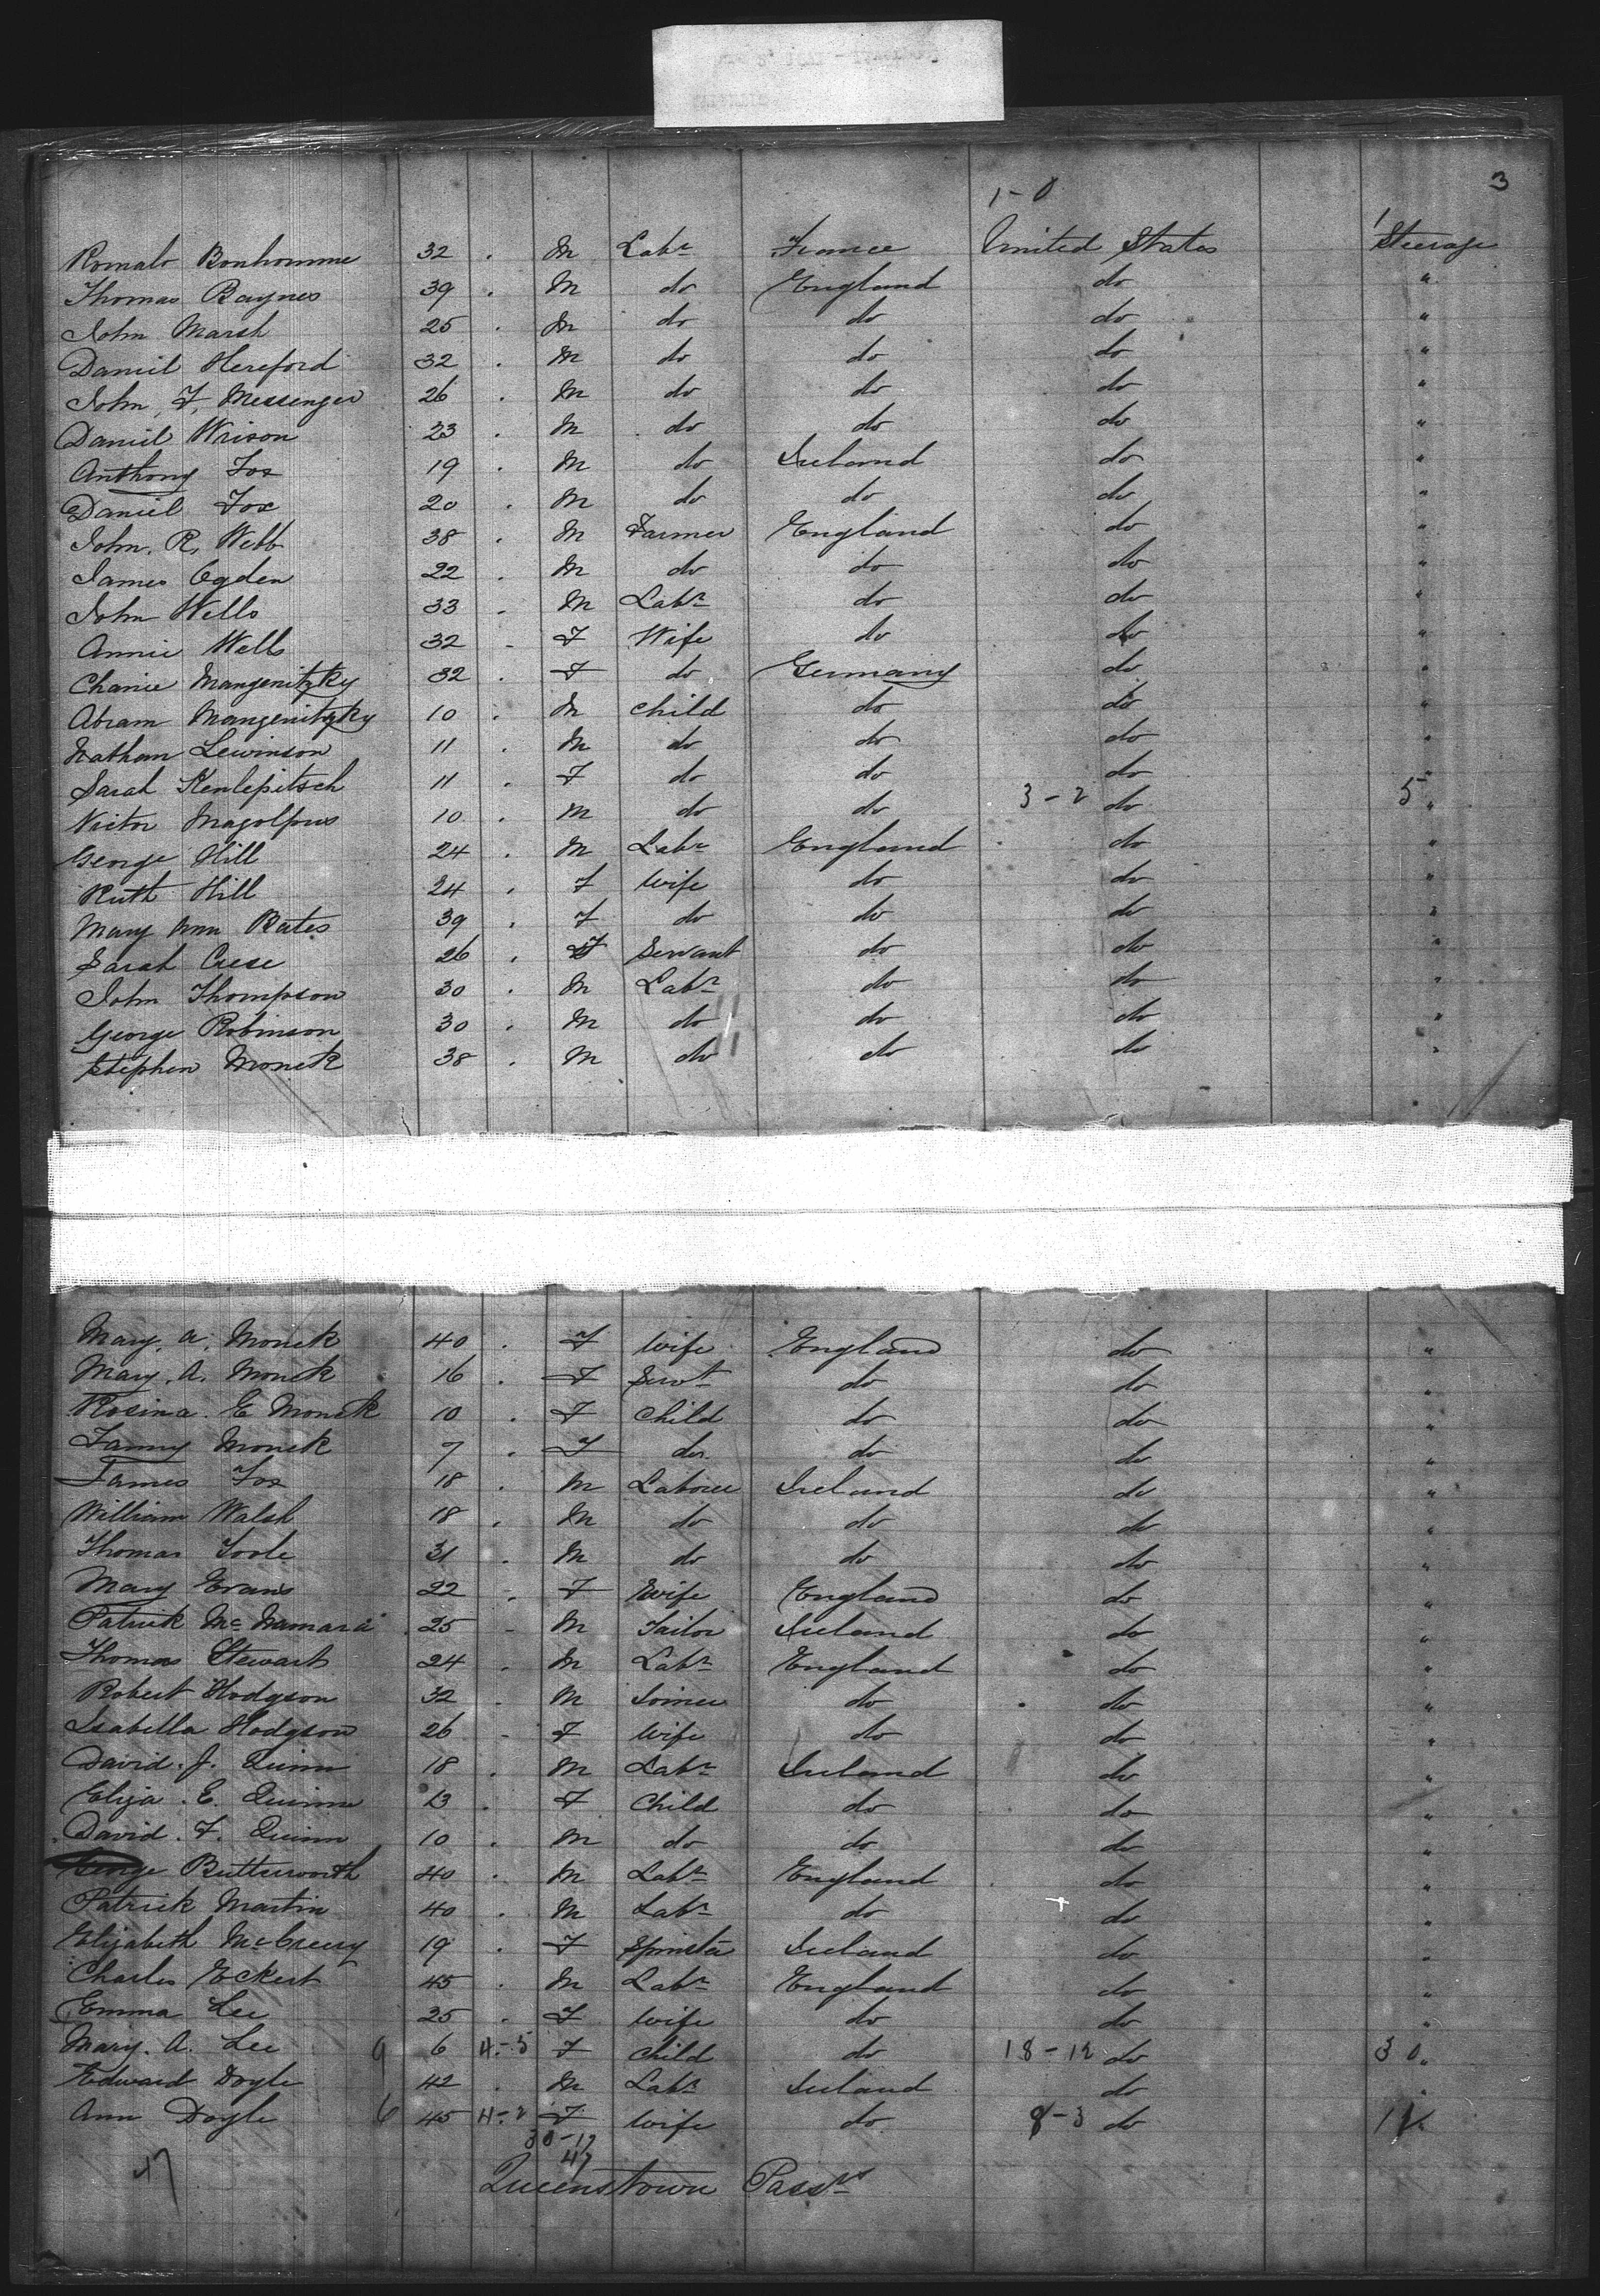 3
1-0
Romalo Bonhomme 32 . M Labr France United States 1 Steerage
Thomas Baynes 39 . M do England do "
John Marsh 25 . M do do do "
Daniel Hereford 32 . M do do do "
John F. Messenger 26 . M do do do "
Daniel Wrison 23 . M do do do "
Anthony Fox 19 . M do Ireland do "
Daniel Fox 20 . M do do do "
John. R. Webb 38 . M Farmer England do "
James Ogden 22 . M do do do "
John Wells 33 . M Labr do do "
Annie Wells 32 - F Wife do do "
Chanie Mangenitzky 32 . F do Germany do "
Abram Mangenitzky 10 . M child do do "
Nathan Lewinson 11 . M do do do "
Sarah Kenlepitsch 11 . F do do do "
Victor Magolpus 10 . M do do 3-2 do 5 "
George Hill 24 . M Labr England do "
Ruth Hill 24 . F wife do do "
Mary Ann Bates 39 . F do do do "
Sarah Crese 26 . F Servant do do "
John Thompson 30 . M Labr do do "
George Robinson 30 . M do do do "
Stephen Monck 38 . M do do do "
Mary. A. Monck 40 . F wife England do "
Mary. A. Monck 16 . F Servt do do "
Rosina. E Monck 10 . F Child do do "
Fanny Monck 7 . F do. do do "
James Fox 18 . M Laborer Ireland do "
William Walsh 18 . M do do do "
Thomas Toole 31 . M do do do "
Mary Evans 22 . F Wife England do "
Patrick McNamara 25 - M Tailor Ireland do "
Thomas Stewart 24 . M Labr England do "
Robert Hodgson 32 . M Joiner do do "
Isabella Hodgson 26 - F Wife do do "
David. J. Quinn 18 . M Labr Ireland do "
Eliza. E. Quinn 13 . F Child do do "
David. F. Quinn 10 . M do do do "
George Butterworth 40 . M Labr England do "
Patrick Martin 40 . M Labr do do "
Elizabeth McCreery 19 . F Spinster Ireland do "
Charles Eckert 45 . M Labr England do "
Emma Lee 25 . F wife do do "
Mary. A. Lee 9 6 4-5 F child do 18-12 do 30 "
Edward Doyle 42 . M Labr Ireland do "
Ann Doyle 6 45 4-2 F wife do 8-3 do 11 "
30-17
47 47
Queenstown Passrs